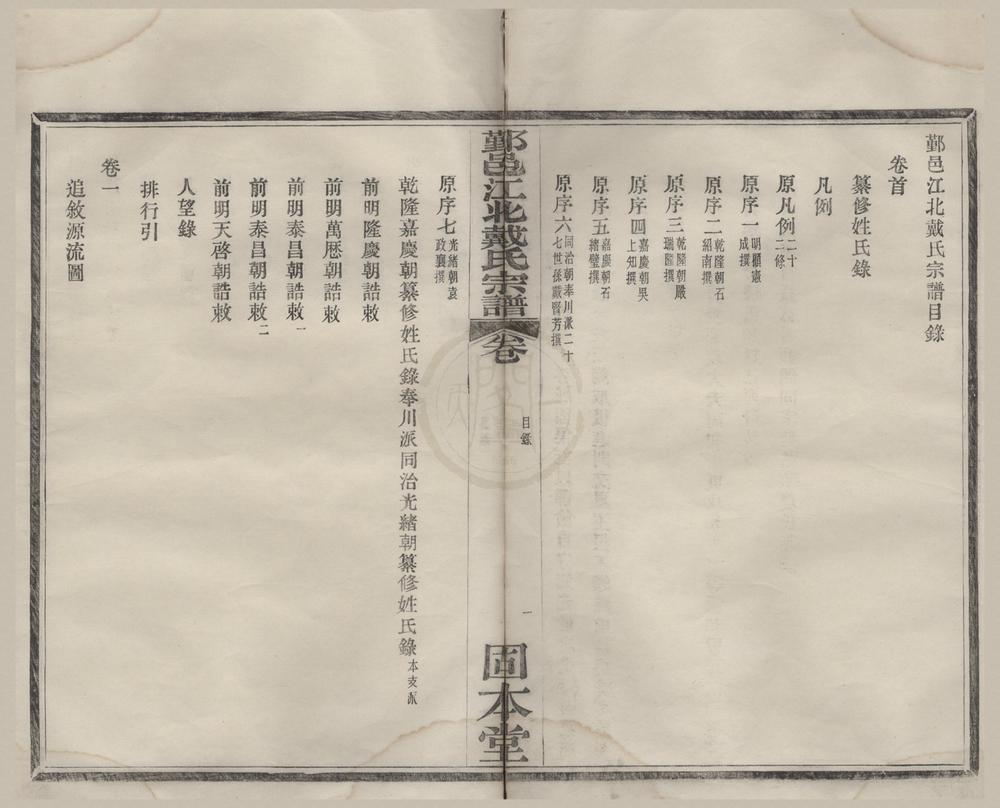 鄞邑江北戴氏宗譜目錄
卷首
纂修姓氏錄
凡例
原凡例二十二條
原序一明顧憲成撰
原序二乾隆朝石紹南撰
原序三乾隆朝嚴瑞隆撰
原序四嘉慶朝吳上知撰
原序五嘉慶朝石緒璧撰
原序六同治朝奉川派二十七世孫戴醫芳撰
鄞邑江北戴氏宗譜
卷
目錄
一
固本堂
原序七光緒朝袁政襄撰
乾隆嘉慶朝纂修姓氏錄奉川派同治光緒朝纂修姓氏錄本支派
前明隆慶朝誥敕
前明萬厯朝誥敕
前明泰昌朝誥敕一
前明泰昌朝誥敕二
前明天啓朝誥敕
人望錄
排行引
卷一
追敘源流圖